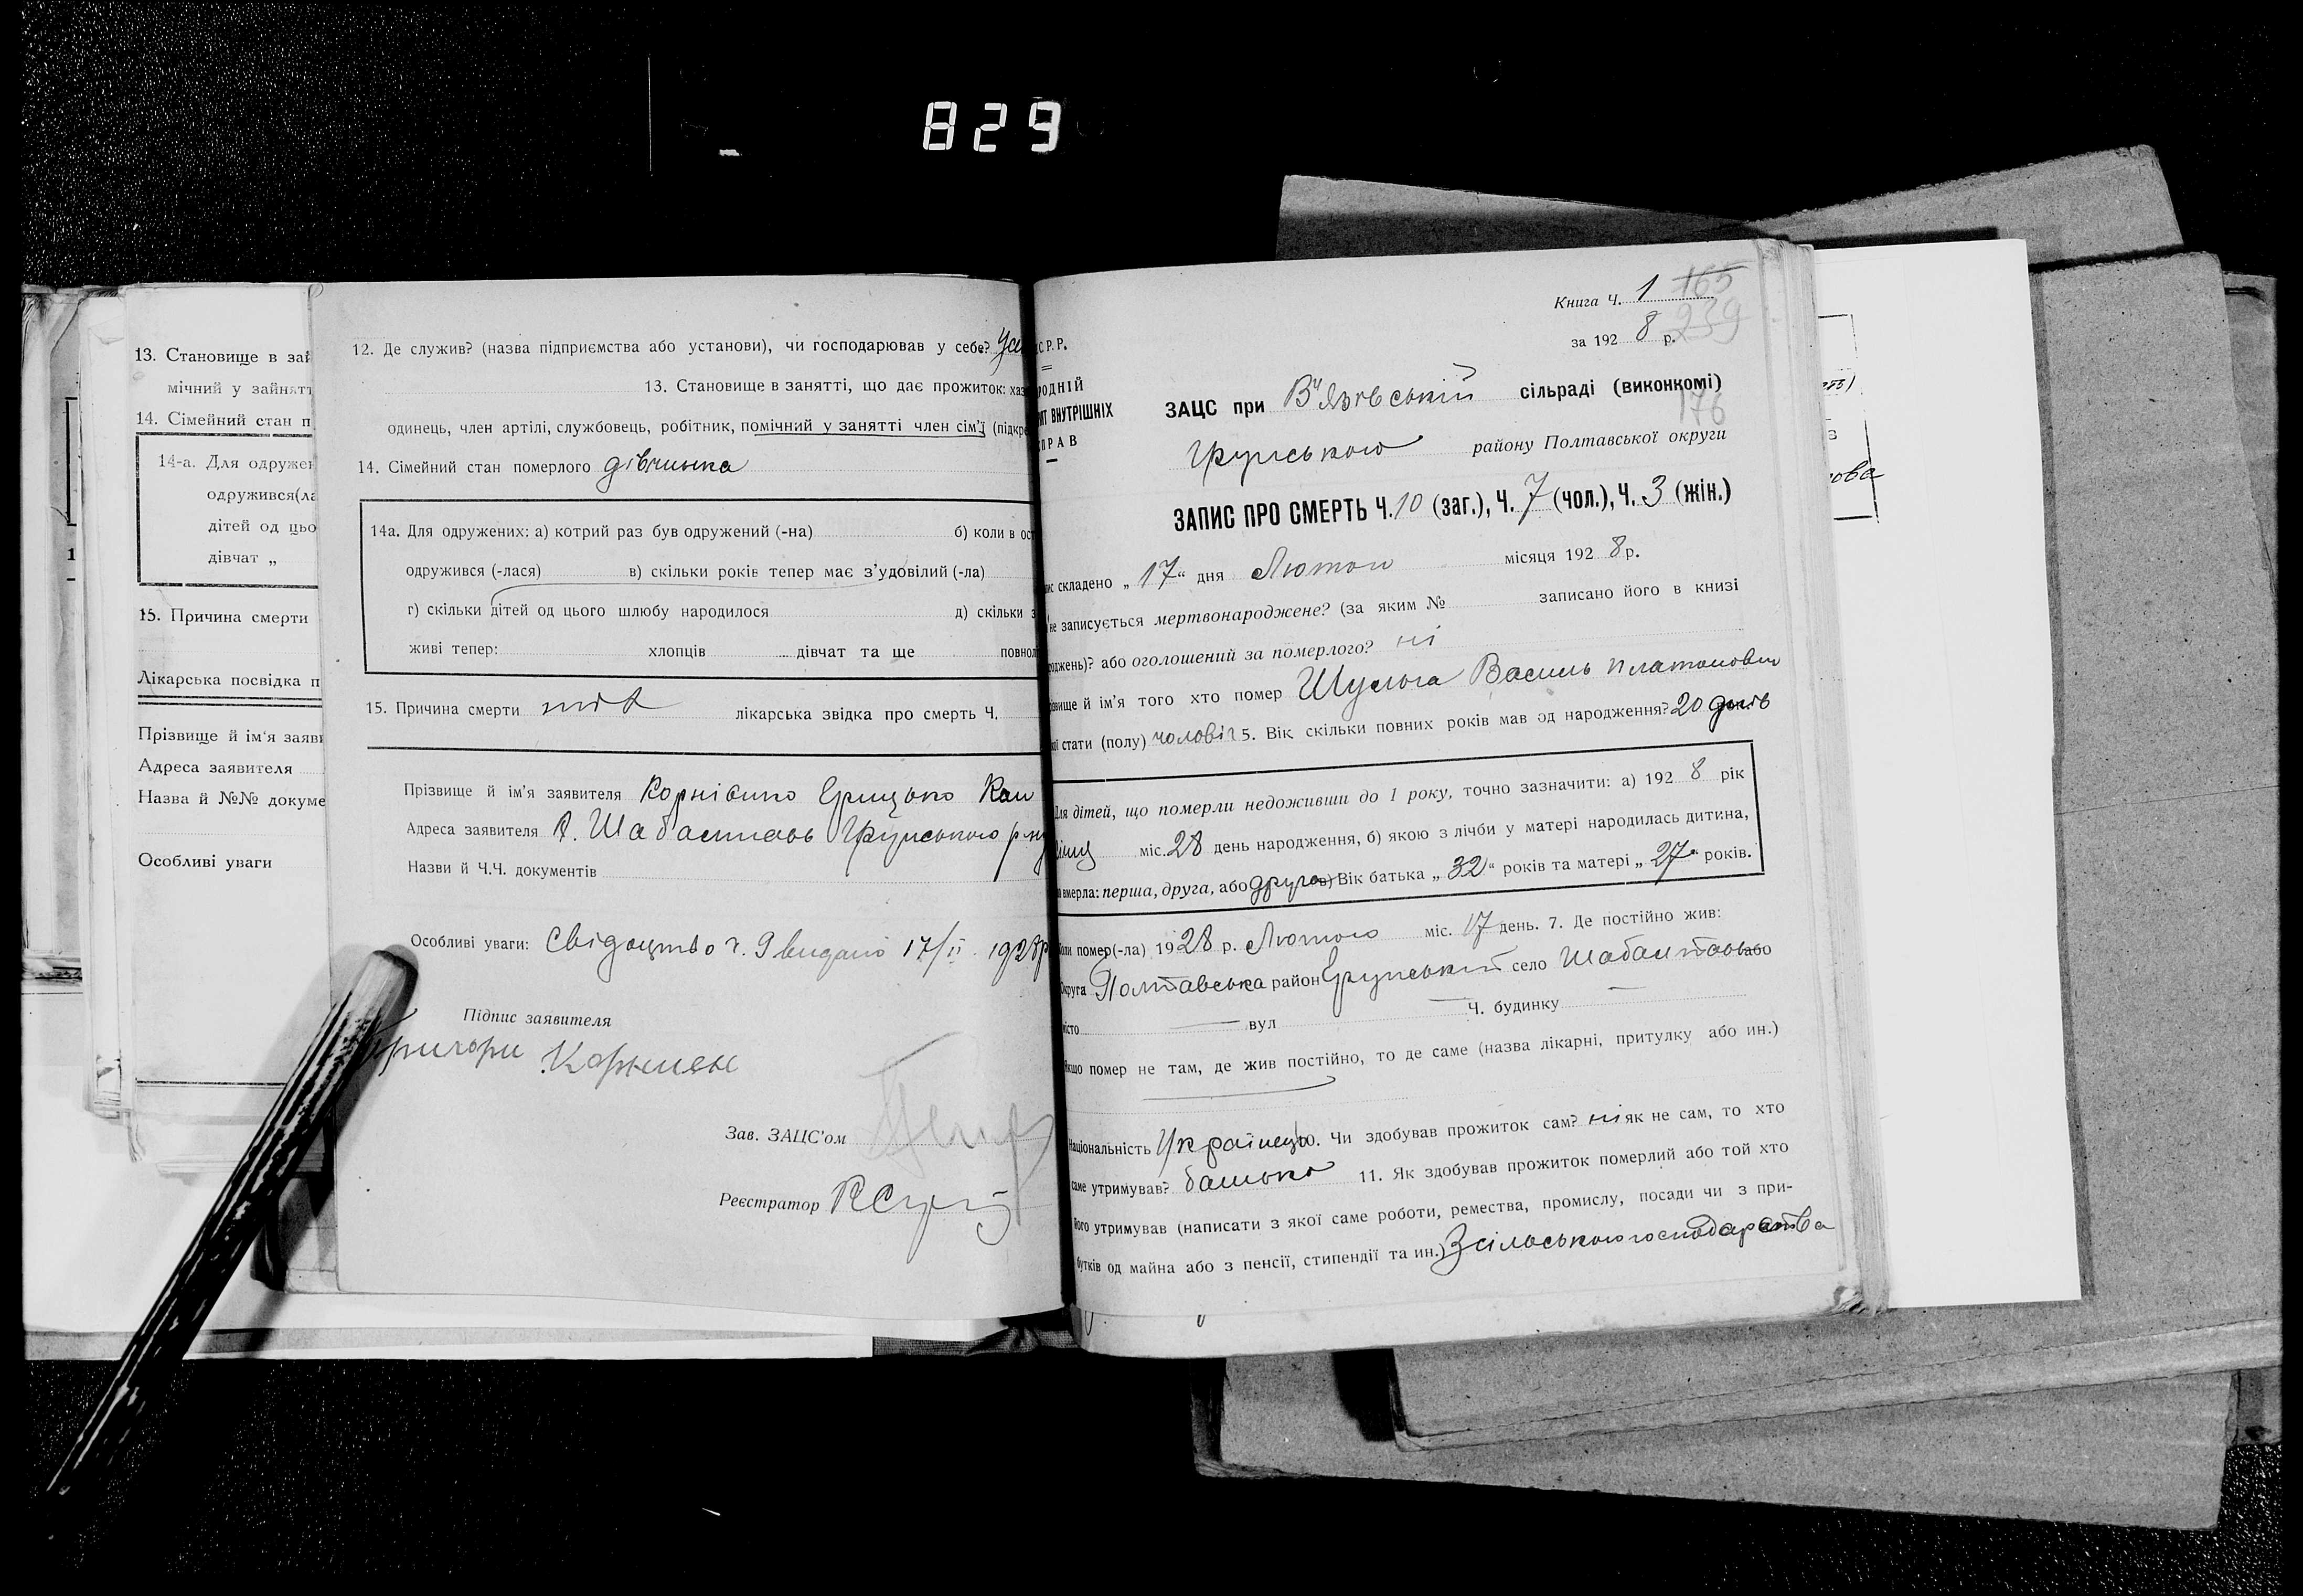 829
13. Становище в зай
мічний у занятт
14. Сімейний стан п
14-а. Для одружен
одружився(ла
дітей од цьо
дівчат „
15. Причина смерти
Лікарська посвідка п
Прізвище й ім'я заяви
Адреса заявителя
Назва й №№ докуме
Особливі уваги
12. Де служив? (назва підприємства або установи), чи господарював у себе? Усе
13. Становище в занятті, що дає прожиток: хаз
одинець, член артілі, службовець, робітник, помічний у занятті член сім'ї (підкре
14. Сімейний стан померлого дівчинка
14а. Для одружених: а) котрий раз був одружений (-на) б) коли в ост
одружився (-лася) в) скільки років тепер має з'удовілий (-ла)
г) скільки дітей од цього шлюбу народилося д) скільки з
живі тепер: хлопців дівчат та ще повнол
15. Причина смерти лікарська звідка про смерть Ч.
Прізвище й ім'я заявителя Корнієнко Грицько
Адреса заявителя Грунського р-ну
Назви й Ч.Ч. документів
Особливі уваги: Свідоцтво ч. 9 видано 17/II 1928р
Підпис заявителя
Григори Корниен
Зав. ЗАЦС'ом
Реєстратор
Книга Ч. 1 165
239
за 192 8 р.
С.Р.Р.
РОДНІЙ
ІЯТ ВНУТРІШНІХ
ПРАВ
ЗАЦС при В'язівській сільраді (виконкомі)
176
Грунського району Полтавської округи
ЗАПИС ПРО СМЕРТЬ Ч. 10 (заг.), Ч. 7 (чол.), Ч. 3 (жін.)
ис складено „ 17 “ дня Лютого місяця 192 8 р.
не записується мертвонароджене? (за яким № записано його в книзі
роджень)? або оголошений за померлого? ні
звище й ім'я того хто помер Шульга Василь Платонович
ої стати (полу) чоловіч 5. Вік скільки повних років мав од народження? 20 днів
Для дітей, що померли недоживши до 1 року, точно зазначити: а) 192 8 рік
міс. 28 день народження, б) якою з лічби у матері народилась дитина,
о вмерла: перша, друга, або друга в) Вік батька „ 32 “ років та матері „ 27 “ років.
Коли помер(-ла) 19 28 р. Лютого міс. 17 день. 7. Де постійно жив:
Округа Полтавська район Грунський село або
місто — вул — Ч. будинку —
Якщо помер не там, де жив постійно, то де саме (назва лікарні, притулку або ин.)
Національність Українець 10. Чи здобував прожиток сам? ні як не сам, то хто
саме утримував? батько 11. Як здобував прожиток померлий або той хто
його утримував (написати з якої саме роботи, ремества, промислу, посади чи з при-
бутків од майна або з пенсії, стипендії та ин.) З сільського господарства